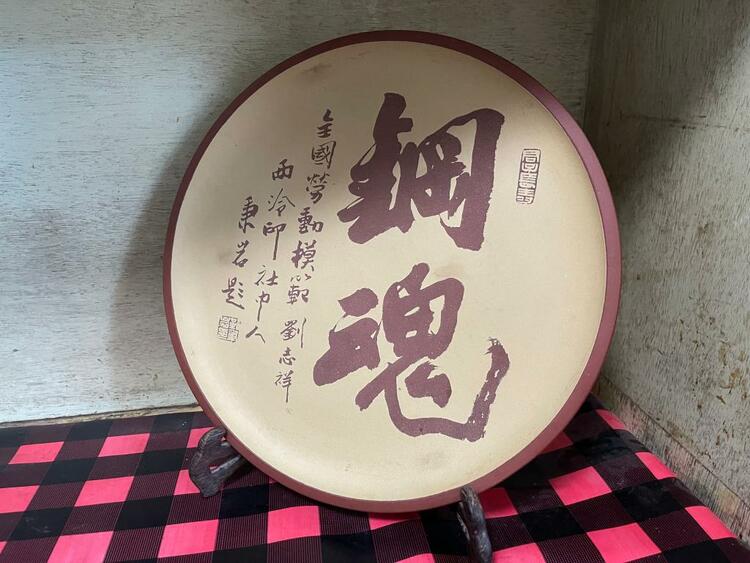 鋼魂
全國勞動模範劉志祥
西泠印社中人
秉岩題